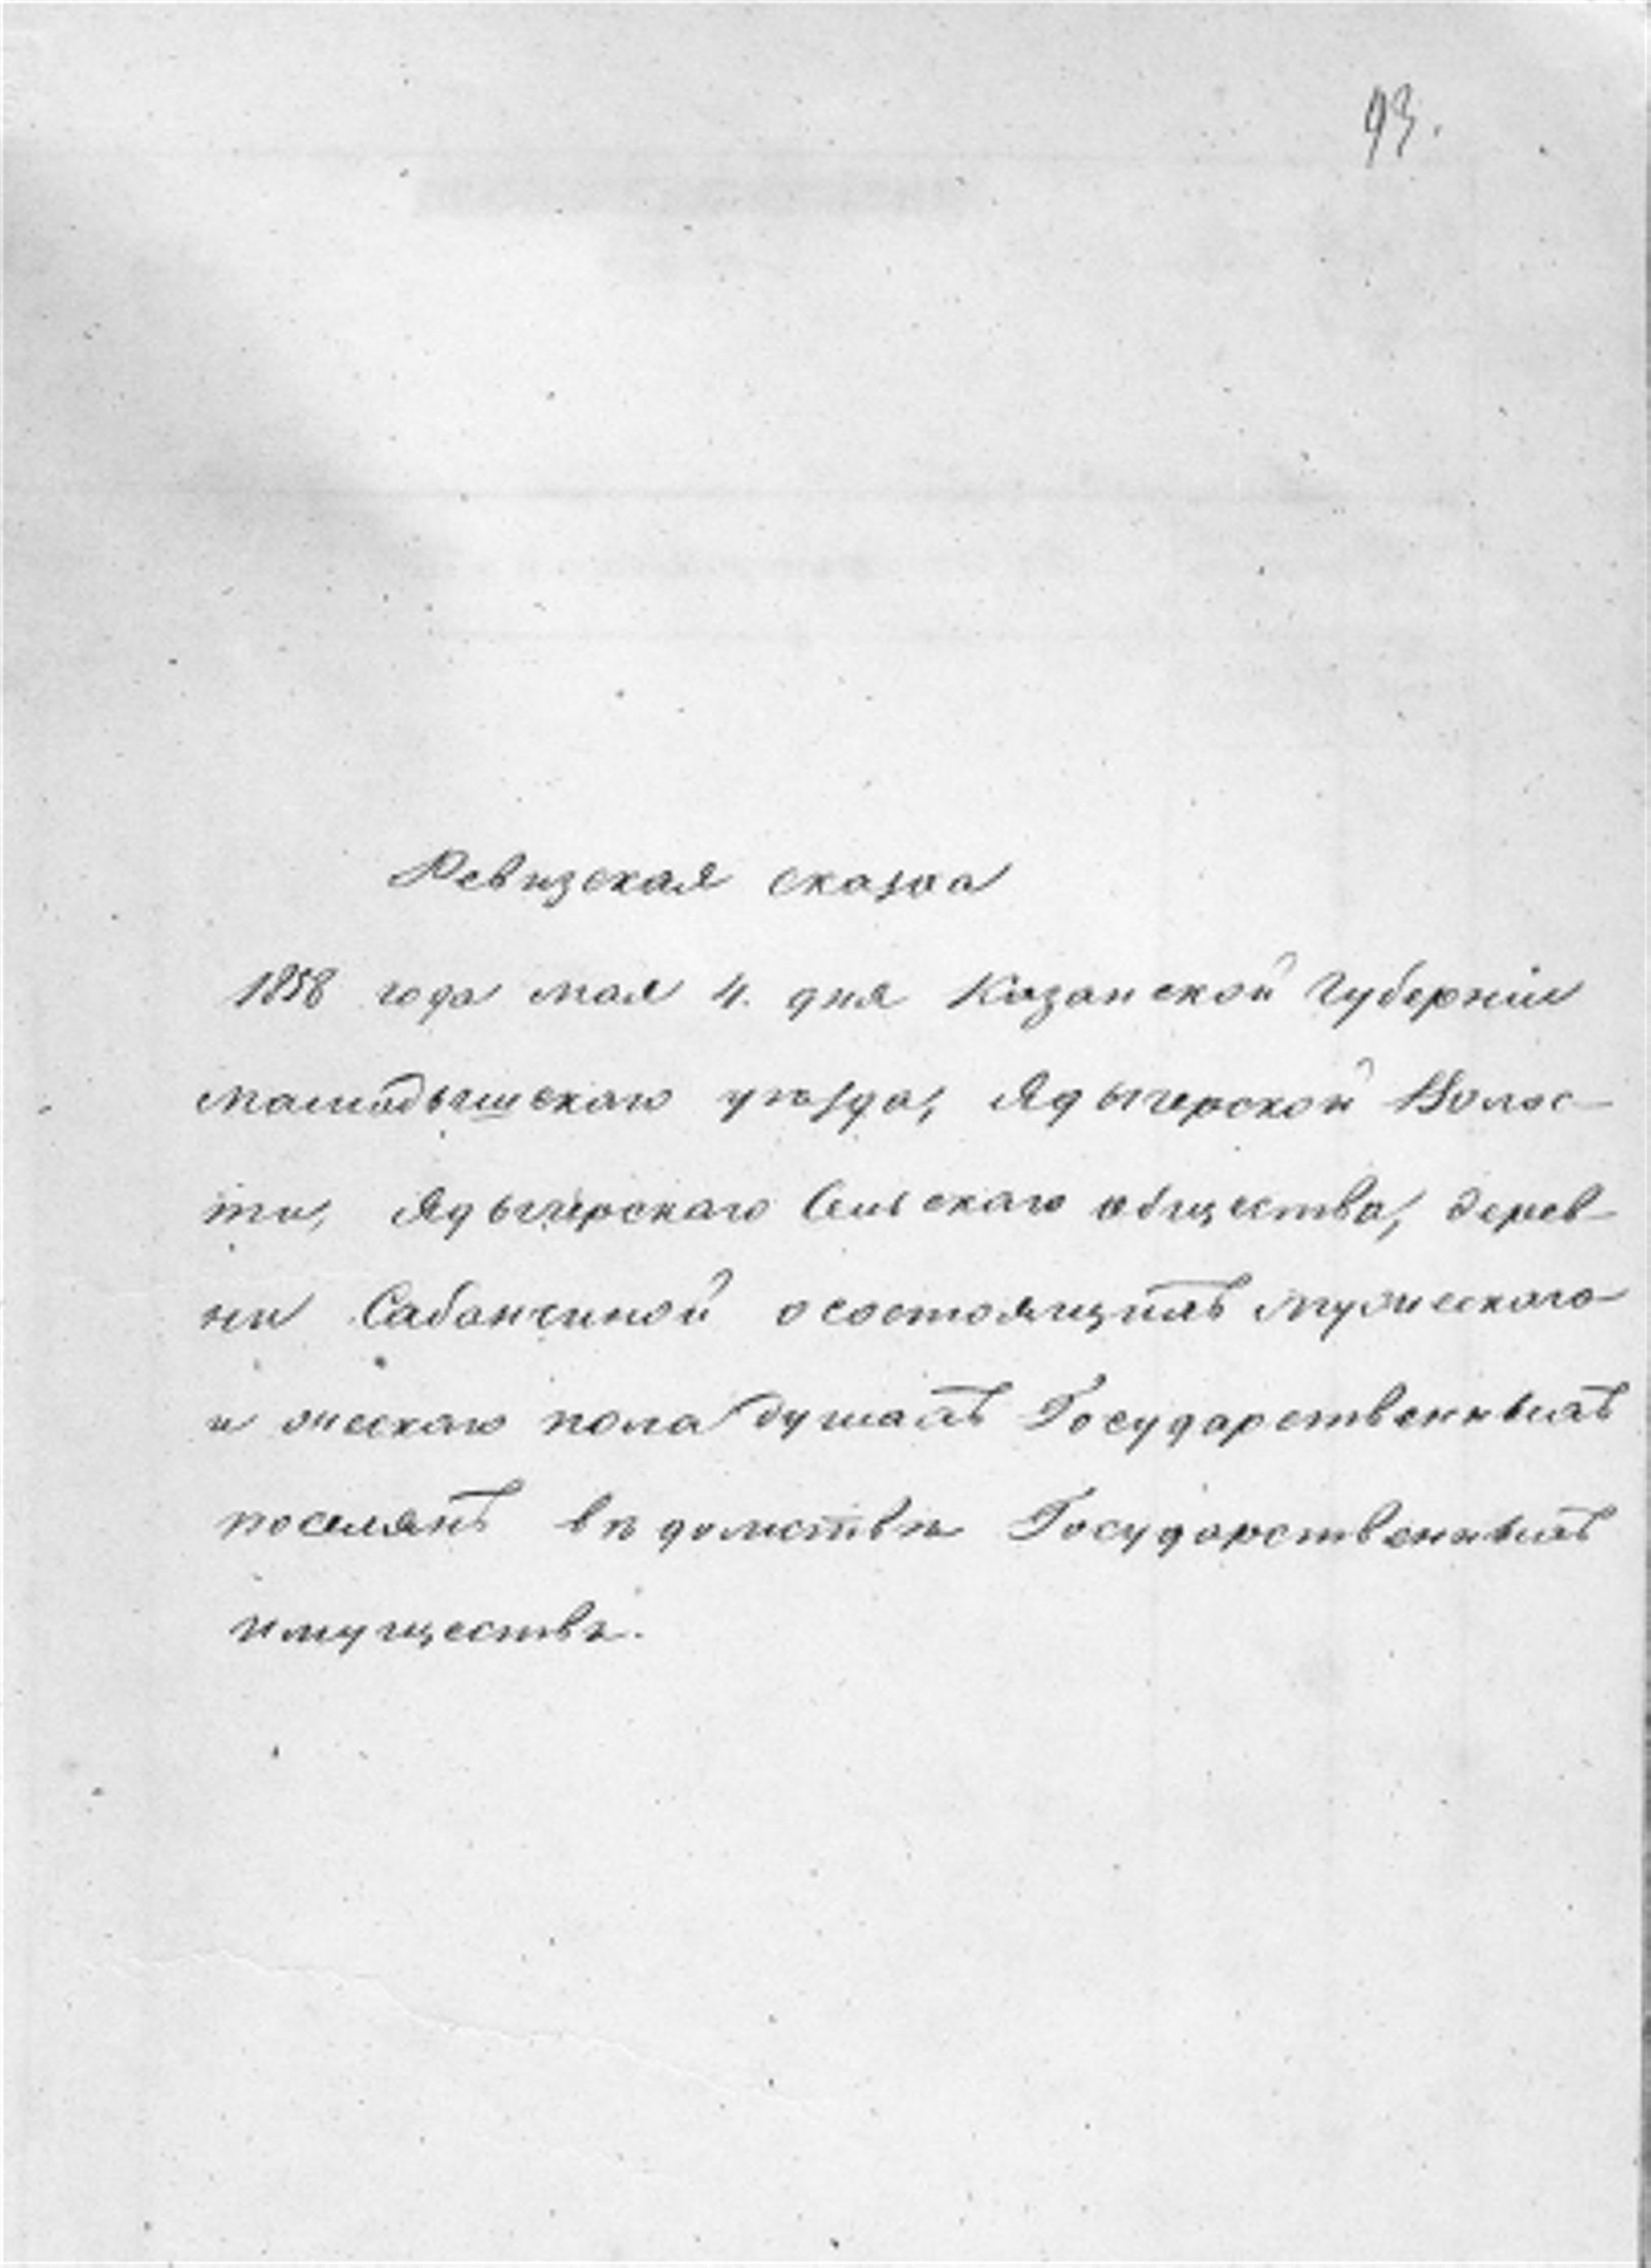 93.
Ревизская сказка
1858 года мая 4. дня Казанской Губерніи
Мамадышскаго уѣзда, Ядыгерской Волос-
ти, Ядыгерскаго Сельскаго общества, дерев-
ни Сабанчиной о состоящихъ мужескаго
и женскаго пола душахъ Государственныхъ
поселянъ вѣдомства Государственныхъ
имуществъ.